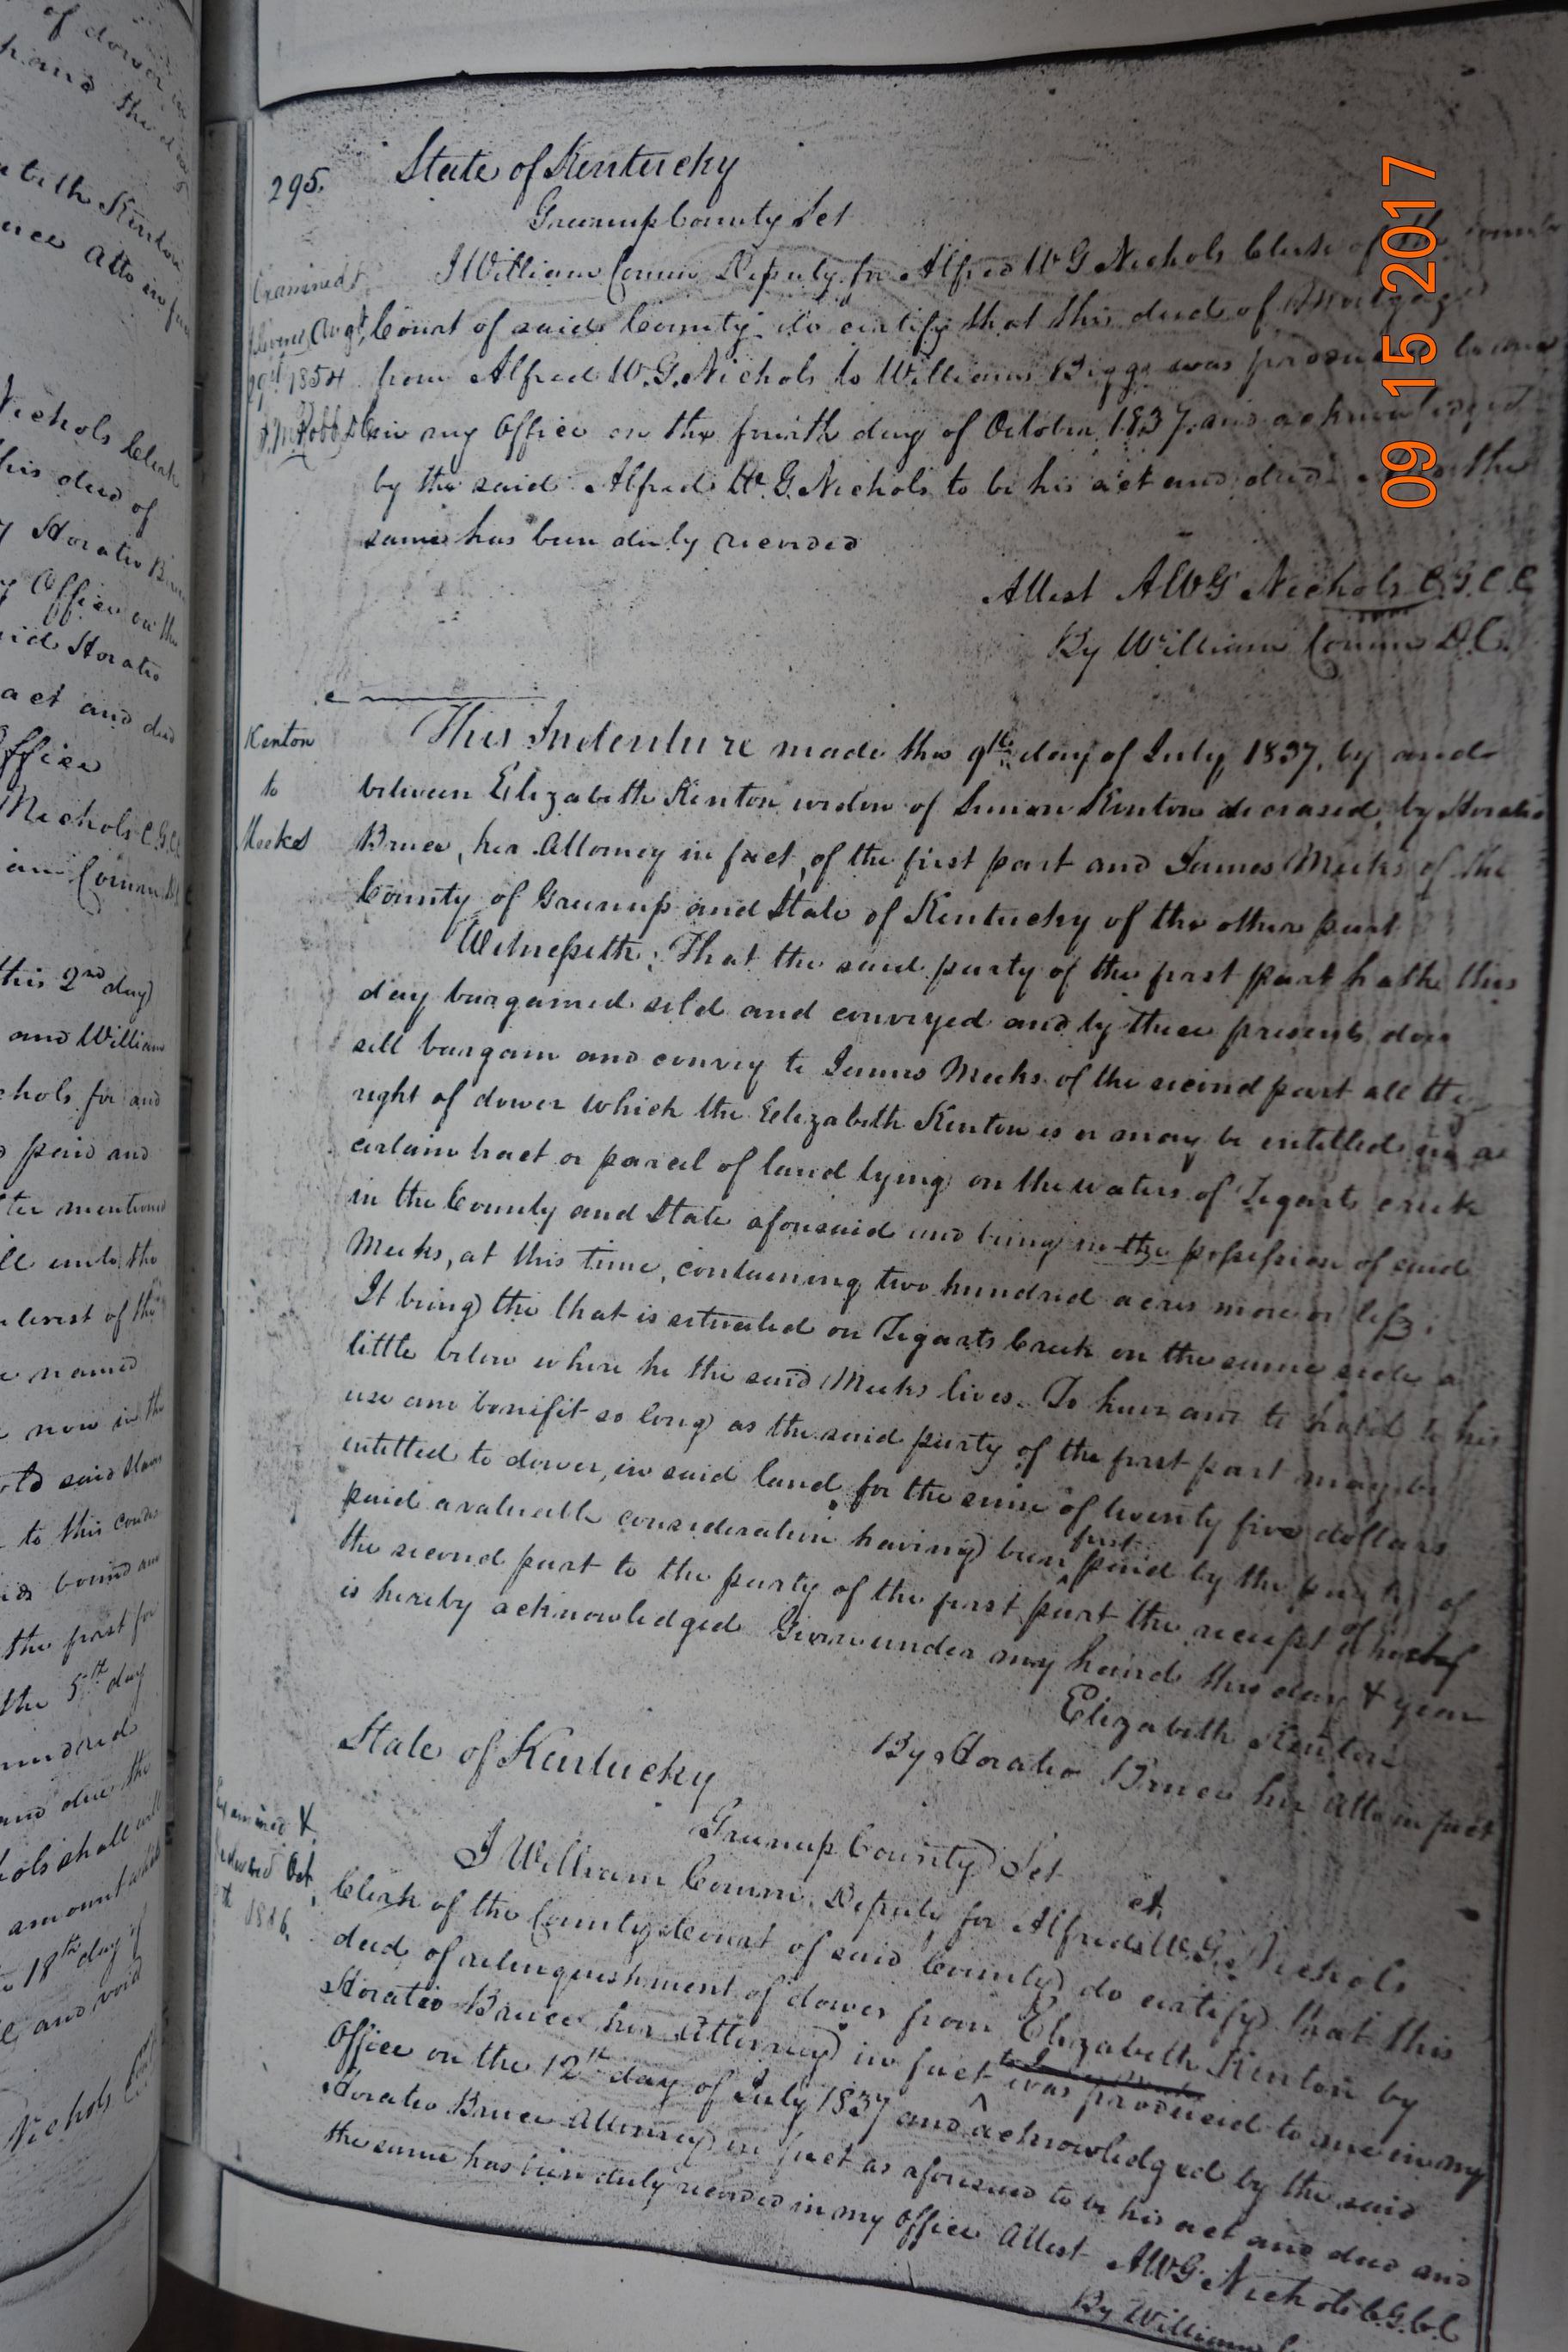 295.
State of Kentucky
Greenup County Set
I William Corum Deputy for Alfred W G Nichols Clerk of the County
Court of said County do certify that this deed of Mortgage
from Alfred W. G. Nichols to William Biggs was produced to me
in my Office on the fourth day of October 1837. and acknowledged
by the said Alfred W. G. Nichols to be his act and deed the
same has been duly recorded
Attest A W G Nichols C. G. C. C.
By William Corum D. C.
Examined &
Augt
29th 1854
Robb
Kenton
to
Meeks
This Indenture made this 9th day of July, 1837, by and
between Elizabeth Kenton widow of Simon Kenton deceased, by Horatio
Bruce, her Attorney in fact, of the first part and James Meeks of the
County of Greenup and State of Kentucky of the other part
Witnesseth; That the said party of the first part hathe this
day bargained sold and conveyed and by these presents does
sell bargain and convey to James Meeks of the second part all the
right of dower which the Elizabeth Kenton is or may be intitled in a
certain tract or parcel of land lying on the waters of Tygarts creek
in the County and State aforesaid and being in the possession of said
Meeks, at this time, containing two hundred acres more or less.
It being the that is situated on Tygarts Creek on the same side a
little below where he the said Meeks lives. To have and to hold to his
use and benifit so long as the said party of the first part may be
intitled to dower, in said land for the sum of twenty five dollars
paid a valueable consideration having been first paid by the party of
the second part to the party of the first part the receipt whereof
is hereby acknowledged Given under my hand this day & year
Elizabeth Kenton
By Horatio Bruce her Atto in fact
State of Kentucky
Greenup County Set
Examined &
Delivered Oct
1846.
I William Corum, Deputy for Alfred W. G. Nichols
Clerk of the County Court of said County do certify that this
deed of relinquishment of dower from Elizabeth Kenton by
Horatio Bruce her Attorney in fact was produced to me in my
Office on the 12th day of July 1837 and acknowledged by the said
Horatio Bruce Attorney in fact as aforesaid to be his act and deed and
the same has been duly recorded in my Office Attest A W G Nichols C. G. C. C
By William
09 15 2017
of dower in
hand the
Kenton
Atto in fact
Nichols Clerk
his deed of
Horatio Bruce
Office on the
said Horatio
act and deed
Office
Nichols C. G. C. C
Corum D C
this 2nd day
and William
Nichols for and
paid and
mentioned
unto the
interest of the
named
now in the
said
to this
bound and
the first for
the 5th day
hundred
and due the
Nichols shall
amount
18th day of
and void
Nichols